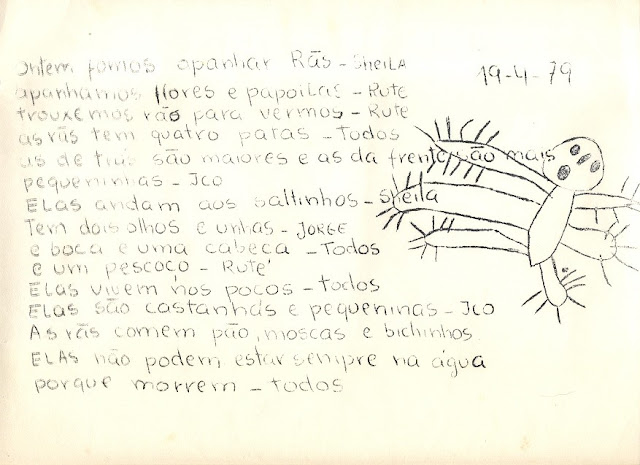 Ontem fomos apanhar Rãs - Sheila
19-4-79
apanhamos flores e papoilas - Rute
trouxemos rãs para vermos - Rute
as rãs tem quatro patas - Todos
as de trás são maiores e as da frente são mais
pequeninas - Jco
Elas andam aos saltinhos - Sheila
Tem dois olhos e unhas - JORGE
e boca e uma cabeca - Todos
e um pescoço - Rute
Elas vivem nos poços - todos
Elas são castanhas e pequeninas - Jco
As rãs comem pão, moscas e bichinhos
ELAS não podem estar sempre na água
porque morrem - todos